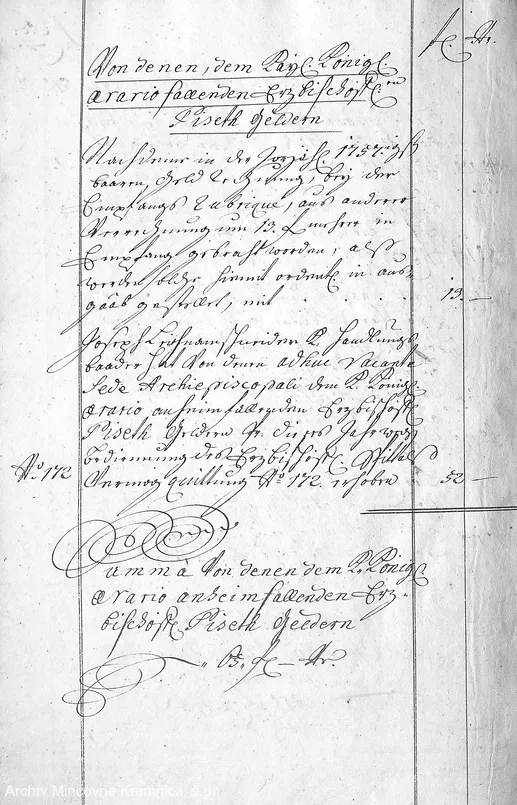 f. Xr.
Von denen, dem Kay. König.
Ærario fallenden Erzbischöfl.en
Piseth Geldern
Nachdeme in der 1757.igst
baaren Geld Rechnung, bey der
Empfangs Rubrique, aus anderer
Verrechnung um 13. f mehrer in
Empfang gebracht worden, alß
werden solche hiemit ordentl. in aus-
gaab gestellet, mit . . . . 13. —
Joseph Leichnamschneider K. Handlungs
baader hat Von denen adhuc Vacante
Sede Archiepiscopali dem K. König.
Ærario anheim fallenden Erzbischöfl.
Piseth Geldern Pr. dieses Jahr wegen
Bedienung des Erzbischöfl. Spittals
No. 172 Vermög quittung No. 172. erhoben 52 —
Summa Von denen dem K. König.
Ærario anheimfallenden Erz-
bischöfl. Piseth Geldern
65. f. — Xr
Archív Mincovne Kremnica, š.p.